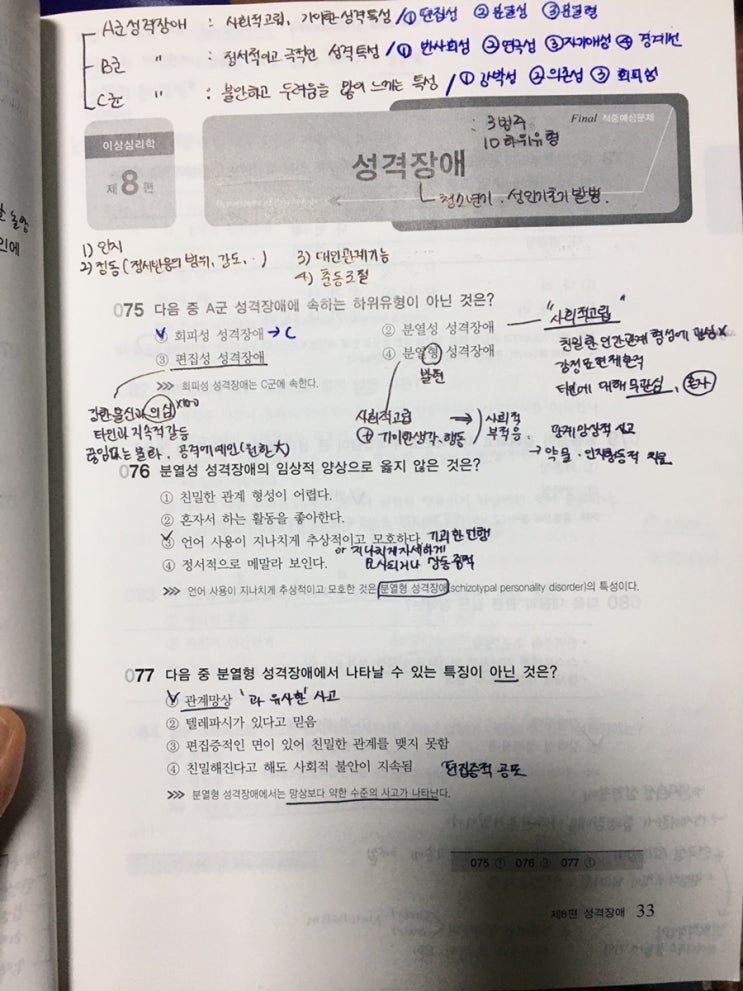 A군성격장애 : 사회적고립, 기이한 성격특성 / ① 편집성 ② 분열성 ③ 분열형
B군 〃 : 정서적이고 극적인 성격특성 / ① 반사회성 ② 연극성 ③ 자기애성 ④ 경계선
C군 〃 : 불안하고 두려움을 많이 느끼는 특성 / ① 강박성 ② 의존성 ③ 회피성
이상심리학
제8편
Final 적중예상문제
: 3범주
10하위유형
성격장애
청소년기, 성인기초기 발병.
1) 인지
2) 정동 (정서반응의 범위, 강도, ..)
3) 대인관계기능
4) 충동조절
075 다음 중 A군 성격장애에 속하는 하위유형이 아닌 것은?
① 회피성 성격장애 → C
② 분열성 성격장애
"사회적고립"
③ 편집성 성격장애
④ 분열형 성격장애
발현
친밀한 인간관계 형성에 관심 X
감정표현
타인에 대해 무관심,
>>> 회피성 성격장애는 C군에 속한다.
강한 불신과 의심
타인과 지속적 갈등
끊임없는 분노, 공격에 예민 (원한大)
사회적고립
⊕ 기이한 생각, 행동
→ 사회적 부적응.
망상적 사고
→ 약물, 인지행동적 치료
076 분열성 성격장애의 임상적 양상으로 옳지 않은 것은?
① 친밀한 관계 형성이 어렵다.
② 혼자서 하는 활동을 좋아한다.
③ 언어 사용이 지나치게 추상적이고 모호하다. 기괴한 언행
or 지나치게 자세하게
묘사되거나 강동증적
④ 정서적으로 메말라 보인다.
>>> 언어 사용이 지나치게 추상적이고 모호한 것은 분열형 성격장애(schizotypal personality disorder)의 특성이다.
077 다음 중 분열형 성격장애에서 나타날 수 있는 특징이 아닌 것은?
① 관계망상 '과 유사한' 사고
② 텔레파시가 있다고 믿음
③ 편집증적인 면이 있어 친밀한 관계를 맺지 못함
④ 친밀해진다고 해도 사회적 불안이 지속됨 편집증적 공포
>>> 분열형 성격장애에서는 망상보다 약한 수준의 사고가 나타난다.
075 ① 076 ③ 077 ①
제8편 성격장애 33